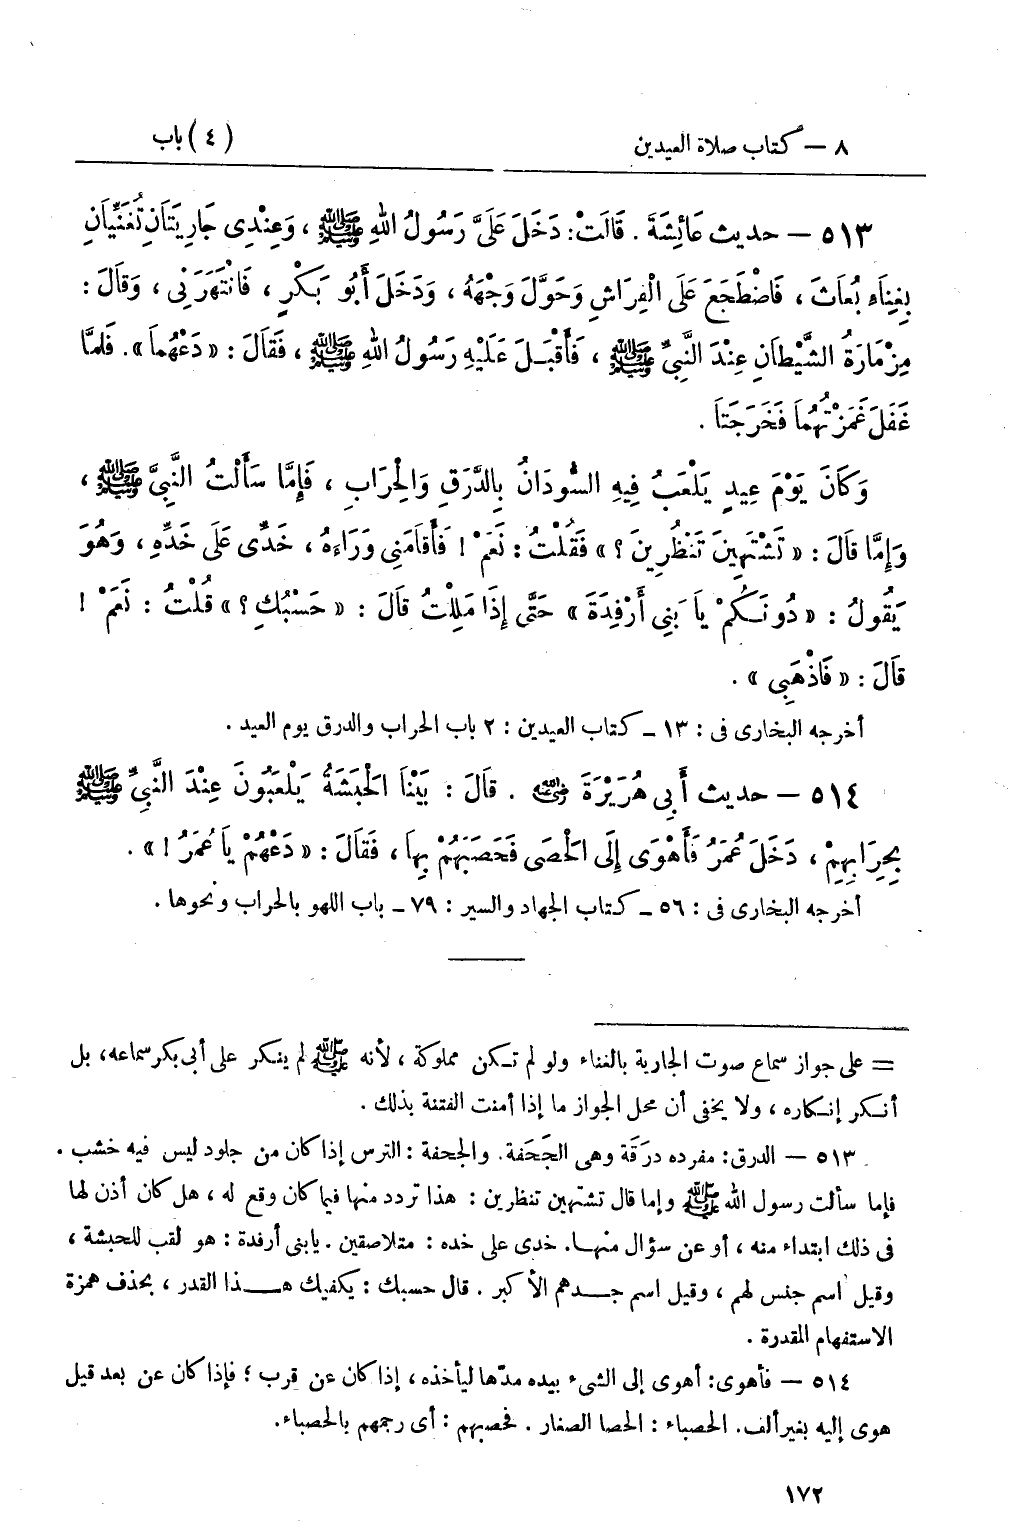 ٨ – كتاب صلاة العيدين
(٤) باب
٥١٣ – حديث عَائِشَةَ . قَالَتْ: دَخَلَ عَلَىَّ رَسُولُ اللهِ ﷺ ، وَعِنْدِى جَارِيَتَانِ تُغَنِّيَانِ
بِغِنَاءِ بُعَاثَ ، فَاضْطَجَعَ عَلَى الْفِرَاشِ وَحَوَّلَ وَجْهَهُ ، وَدَخَلَ أَبُو بَكْرٍ ، فَانْتَهَرَنِى ، وَقَالَ :
مِزْمَارَةُ الشَّيْطَانِ عِنْدَ النَّبِىِّ ﷺ ، فَأَقْبَلَ عَلَيْهِ رَسُولُ اللهِ ﷺ ، فَقَالَ : « دَعْهُمَا ». فَلَمَّا
غَفَلَ غَمَزْتُهُمَا فَخَرَجَتَا .
وَكَانَ يَوْمَ عِيدٍ يَلْعَبُ فِيهِ السُّودَانُ بِالدَّرَقِ وَالْحِرَابِ ، فَإِمَّا سَأَلْتُ النَّبِىَّ ﷺ ،
وَإِمَّا قَالَ : « تَشْتَهِينَ تَنْظُرِينَ ؟ » فَقُلْتُ : نَعَمْ ! فَأَقَامَنِى وَرَاءَهُ ، خَدِّى عَلَى خَدِّهِ ، وَهُوَ
يَقُولُ : « دُونَكُمْ يَا بَنِى أَرْفِدَةَ » حَتَّى إِذَا مَلِلْتُ قَالَ : « حَسْبُكِ ؟ » قُلْتُ : نَعَمْ !
قَالَ : « فَاذْهَبِى » .
أخرجه البخارى فى : ١٣ ـ كتاب العيدين : ٢ باب الحراب والدرق يوم العيد .
٥١٤ – حديث أَبِى هُرَيْرَةَ رضي الله عنه . قَالَ : بَيْنَا الْحَبَشَةُ يَلْعَبُونَ عِنْدَ النَّبِىِّ ﷺ
بِحِرَابِهِمْ ، دَخَلَ عُمَرُ فَأَهْوَى إِلَى الْحَصَى فَحَصَبَهُمْ بِهَا ، فَقَالَ : « دَعْهُمْ يَا عُمَرُ ! » .
أخرجه البخارى فى : ٥٦ ـ كتاب الجهاد والسير : ٧٩ ـ باب اللهو بالحراب ونحوها .
= على جواز سماع صوت الجارية بالغناء ولو لم تكن مملوكة ، لأنه ﷺ لم ينكر على أبى بكر سماعه، بل
أنكر إنكاره ، ولا يخفى أن محل الجواز ما إذا أمنت الفتنة بذلك .
٥١٣ – الدرق: مفرده درَقَة وهى الجَحَفة. والجحفة : الترس إذا كان من جلود ليس فيه خشب .
فإما سألت رسول الله ﷺ وإما قال تشتهين تنظرين : هذا تردد منها فيما كان وقع له ، هل كان أذن لها
فى ذلك ابتداء منه ، أو عن سؤال منها. خدى على خده : متلاصقين . يابنى أرفدة : هو لقب للحبشة ،
وقيل اسم جنس لهم ، وقيل اسم جدهم الأكبر . قال حسبك : يكفيك هذا القدر ، بحذف همزة
الاستفهام المقدرة .
٥١٤ – فأهوى: أهوى إلى الشىء بيده مدّها ليأخذه ، إذا كان عن قرب ؛ فإذا كان عن بعد قيل
هوى إليه بغير ألف. الحصباء : الحصا الصغار . فحصبهم : أى رجمهم بالحصباء.
١٧٢